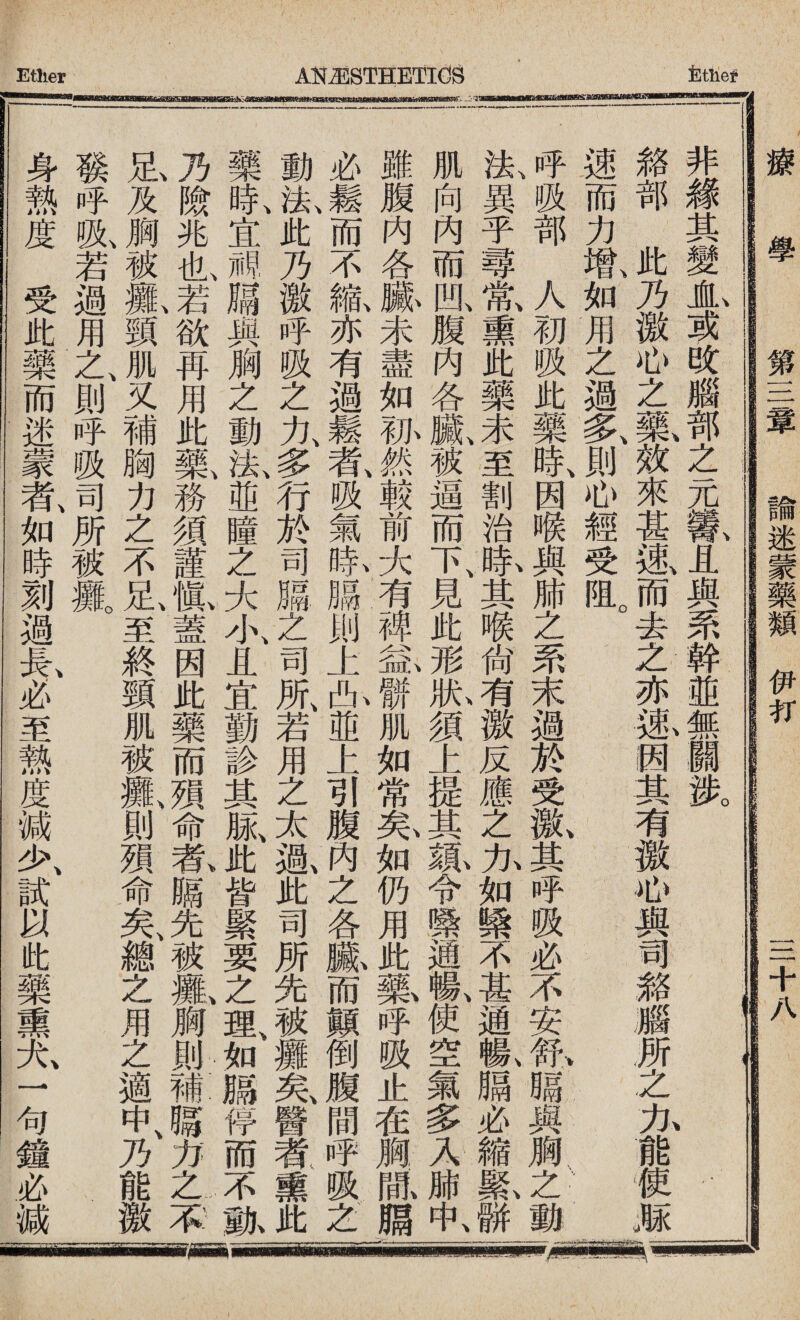 Ether ANÆSTHETICS Ether
療學 第三章 論迷蒙藥類 伊打 三十八
非緣其變血、或改腦部之元籌、且與系幹並無關涉。
絡部 此乃激心之藥、效來甚速、而去之亦速、因其有激心與司絡腦所之力、能使脉
速而力增、如用之過多、則心經受阻。
呼吸部 人初吸此藥時、因喉與肺之系末過於受激、其呼吸必不安舒、膈與胸之動
法、異乎尋常、熏此藥未至割治時、其喉尙有激反應之力、如縏不甚通暢、膈必縮緊、骿
肌向內而凹、腹內各臟、被逼而下、見此形狀、須上提其頦、令嗓通暢、使空氣多入肺中、
雖腹內各臟、未盡如初、然較前大有裨益、骿肌如常矣、如仍用此藥、呼吸止在胸間、膈
必鬆而不縮、亦有過鬆者、吸氣時、膈則上凸、並上引腹內之各臟、而顚倒腹間呼吸之
動法、此乃激呼吸之力、多行於司膈之司所、若用之太過、此司所先被癱矣、醫者熏此
藥時、宜視膈與胸之動法、並瞳之大小、且宜勤診其脉、此皆緊要之理、如膈停而不動、
乃險兆也、若欲再用此藥、務須謹愼、蓋因此藥而殞命者、膈先被癱、胸則補膈力之不
足、及胸被癱、頸肌又補胸力之不足、至終頸肌被癱、則殞命矣、總之用之適中、乃能激
發呼吸、若過用之、則呼吸司所被癱。
身熱度 受此藥而迷蒙者、如時刻過長、必至熱度減少、試以此藥熏犬、一句鐘必減